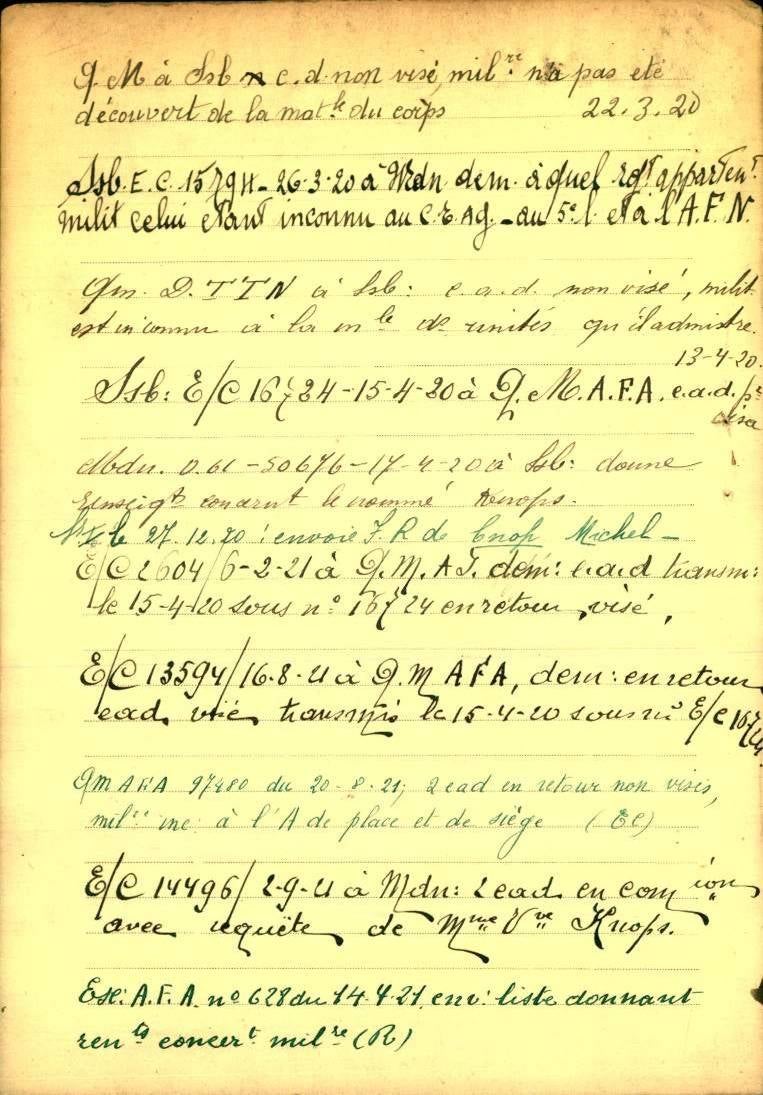 Q M à Ssb c.d. non visé, mil.re n'a pas eté
découvert de la mat.le du corps 22.3.20
Ssb. E.C. 15794 - 26-3-20 à Mdn dem. à quel rgt appartent.
milit celui etant inconnu au C.E.Ag. - au 5e l. et à l'A.F.N.
Qm. D.TTN à Ssb: e.a.d. non visé, milit.
est inconnu à la mle des unités qu'il admistre.
13-4-20.
Ssb: E/C 16724-15-4-20 à Q.M.A.F.A. e.a.d. pr
visa
Mdn. 0.61 - 50676-17-4-20 à Ssb: donne
renseigts concernt le nommé Knops.
le 27.12.20: envoie F.R de Cnop Michel -
E/C 2604/6-2-21 à Q.M.A.F. dem: e.a.d transm:
le 15-4-20 sous n° 16724 en retour, visé,
E/C 13594/16-8-21 à Q.M AFA, dem: en retour
ead, visé, transmis le 15-4-20 sous n° E/C 16724
QM AFA 97480 du 20-8-21; 2 ead en retour non visés,
milre inc. à l'A de place et de siège (EC)
E/C 14496/2-9-21 à Mdn: 2 ead en com ion
avec requête de Mme Vve Knops.
Esc. A.F.A. n° 628 du 14.4.21. env: liste donnant
rents concert milre (R)